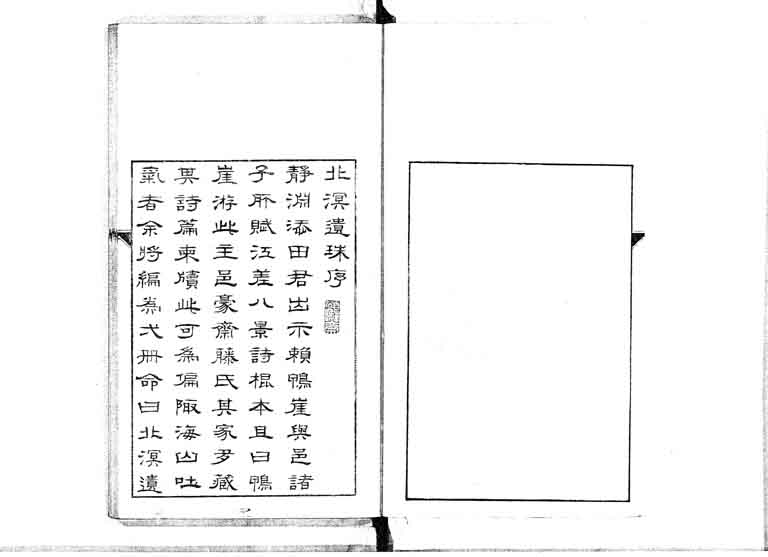 北溟遺珠序
靜淵添田君出示賴鴨崖與邑諸
子所賦江差八景詩楒本且曰鴨
崖游此主邑豪齋藤氏其家多藏
其詩篇柬牘此可為偏陬海山吐
氣者余將編為弌冊命曰北溟遺